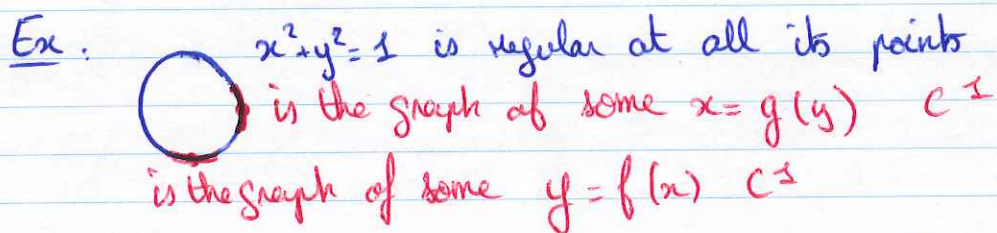 Ex: x²+y²=1 is regular at all its points
is the graph of some x=g(y) C¹
is the graph of some y=f(x) C¹